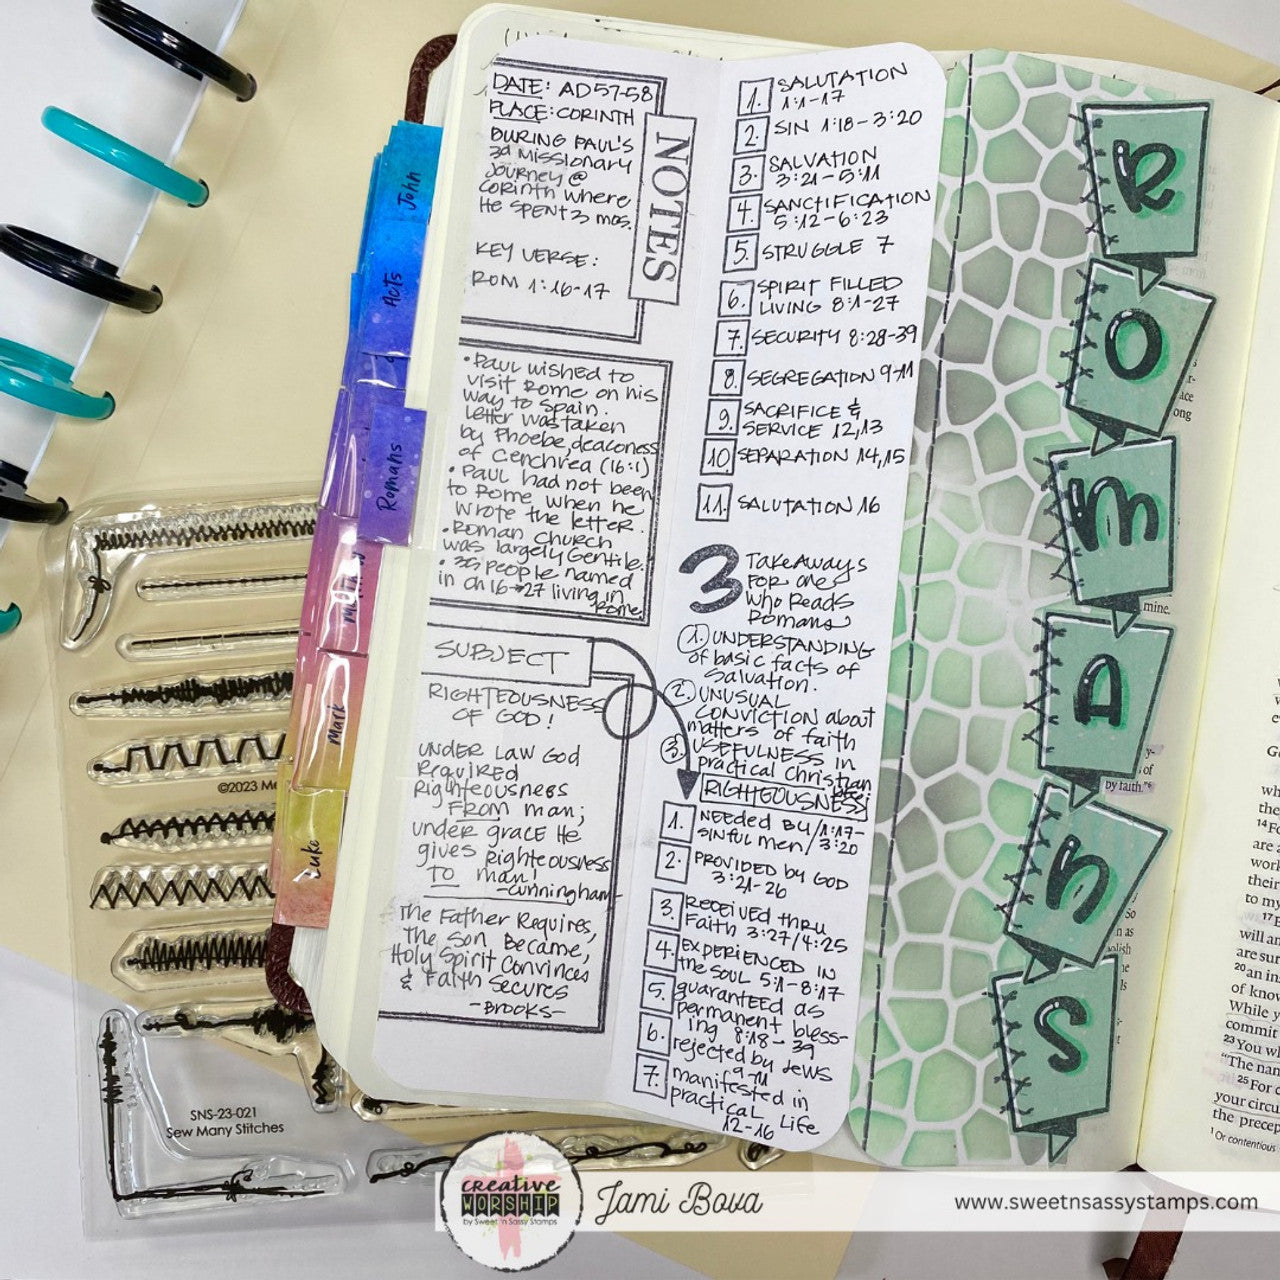 DATE: AD 57-58
PLACE: CORINTH
DURING PAUL'S
3d MISSIONARY
JOURNEY @
CORINTH WHERE
HE SPENT 3 mos.
KEY VERSE:
ROM 1:16-17
NOTES
• PAUL WISHED TO
VISIT ROME ON HIS
WAY TO SPAIN.
LETTER WAS TAKEN
by Phoebe, deaconess
of Cenchrea (16:1)
• PAUL HAD NOT been
TO ROME WHEN he
WROTE THE LETTER.
• ROMAN CHURCH
WAS largely Gentile.
• 35 people named
in ch 16 → 27 living in
Rome
SUBJECT
RIGHTEOUSNESS
OF GOD!
UNDER LAW GOD
Required
Righteousness
FROM man;
under grace He
gives righteousness
TO man!
-Cunningham-
The Father Requires,
The Son Became,
Holy Spirit Convinces
& Faith Secures
-Brooks-
1. SALUTATION
1:1-17
2. SIN 1:18-3:20
3. SALVATION
3:21-5:11
4. SANCTIFICATION
5:12-6:23
5. STRUGGLE 7
6. SPIRIT FILLED
LIVING 8:1-27
7. SECURITY 8:28-39
8. SEGREGATION 9-11
9. SACRIFICE &
SERVICE 12,13
10. SEPARATION 14,15
11. SALUTATION 16
3 TakeAways
FOR one
who Reads
Romans
1. UNDERSTANDING
of basic facts of
Salvation.
2. UNUSUAL
CONVICTION about
matters of faith
3. USEFULNESS in
practical Christian
RIGHTEOUSNESS
1. NEEDED BY/1:17-
SINFUL MEN/3:20
2. PROVIDED BY GOD
3:21-26
3. RECEIVED THRU
Faith 3:27/4:25
4. EXPERIENCED IN
the SOUL 5:1-8:17
5. guaranteed as
permanent bless-
ing 8:18-39
6. rejected by Jews
9-11
7. manifested in
practical Life
12-16
R
O
M
A
N
S
John
Acts
Romans
Mark
Luke
©2023 Me
SNS-23-021
Sew Many Stitches
mine.
by faith."6
14For
are a
work
their
to my
17
will an
are sur
20an in
of know
While y
commit
23You w
"The nan
25For c
your circu
the precep
1Or contentious
creative
WORSHIP
by Sweet 'n Sassy Stamps
Jami Bova
www.sweetnsassystamps.com